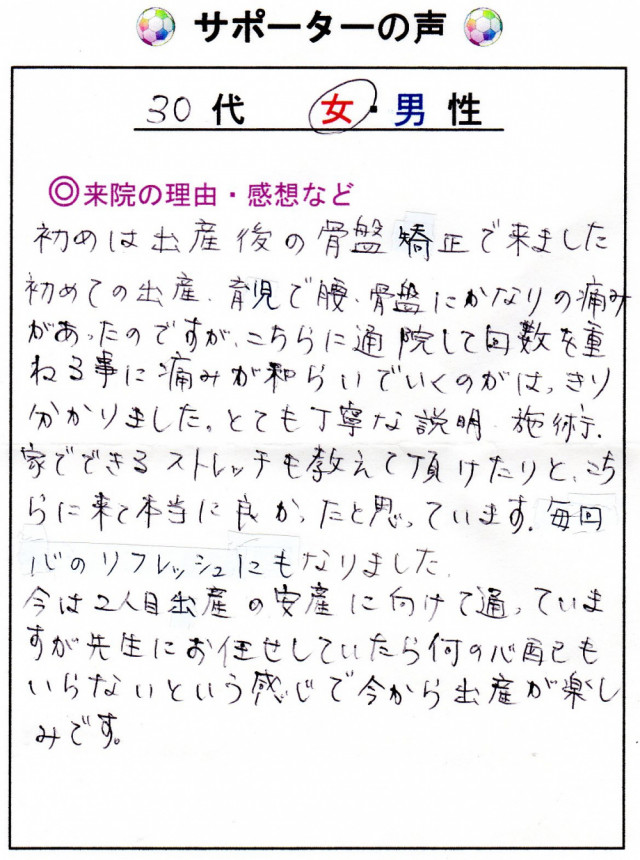 サポーターの声
30代 女・男性
◎来院の理由・感想など
初めは出産後の骨盤矯正で来ました
初めての出産、育児で腰、骨盤にかなりの痛み
があったのですが、こちらに通院して回数を重
ねる事に痛みが和らいでいくのがはっきり
分かりました。とても丁寧な説明、施術、
家でできるストレッチも教えて頂けたりと、こち
らに来て本当に良かったと思っています。毎回
心のリフレッシュにもなりました。
今は2人目出産の安産に向けて通っていま
すが先生にお任せしていたら何の心配も
いらないという感じで今から出産が楽し
みです。